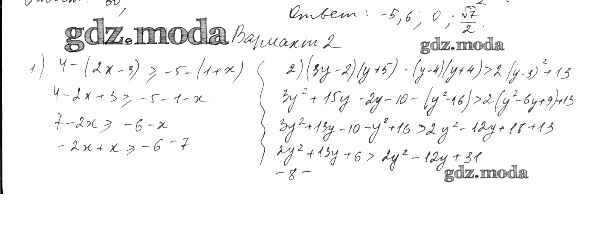 Ответ: -5,6; 0; √7/2
gdz.moda
Вариант 2
gdz.moda
1) 4-(2x-3) ≥ -5-(1+x)
4-2x+3 ≥ -5-1-x
7-2x ≥ -6-x
-2x+x ≥ -6-7
2) (3y-2)(y+5) - (y-4)(y+4) > 2(y-3)²+13
3y²+15y-2y-10-(y²-16) > 2(y²-6y+9)+13
3y²+13y-10-y²+16 > 2y²-12y+18+13
2y²+13y+6 > 2y²-12y+31
gdz.moda
-8-